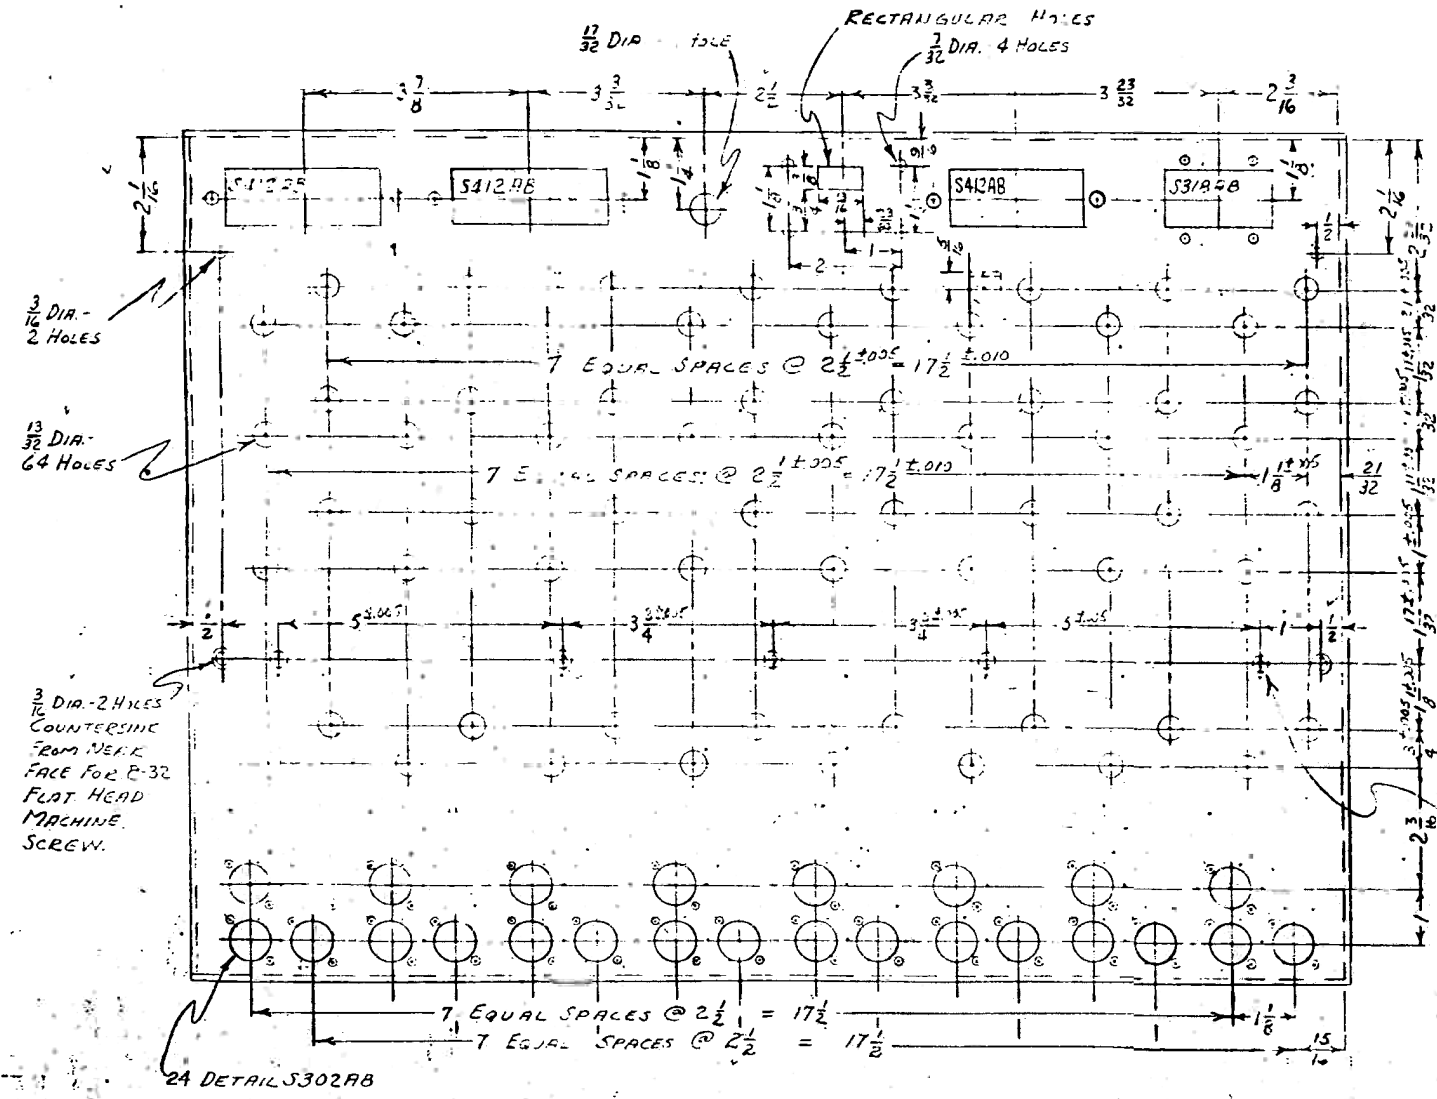 RECTANGULAR HOLES
17/32 DIA HOLE
7/32 DIA. 4 HOLES
3 7/8
3 3/32
2 1/2
3 3/32
3 23/32
2 3/16
2 1/16
1 1/8
1 1/4
9/16
1 1/8
2 1/16
S412AB
S412AB
S412AB
S318AB
1/2
1
2
3/16 DIA.-
2 HOLES
7 EQUAL SPACES @ 2 1/2 ±.005 = 17 1/2 ±.010
13/32 DIA.-
64 HOLES
7 EQUAL SPACES @ 2 1/2 ±.005 = 17 1/2 ±.010
1 1/8 ±.005
21/32
1/2
5 ±.005
3 3/4 ±.005
3 3/4 ±.005
5 ±.005
1
1/2
3/16 DIA.-2 HOLES
COUNTERSINK
FROM NEAR
FACE FOR 8-32
FLAT HEAD
MACHINE
SCREW.
2 3/16
1
7 EQUAL SPACES @ 2 1/2 = 17 1/2
1 1/8
7 EQUAL SPACES @ 2 1/2 = 17 1/2
15/16
24 DETAIL S302AB